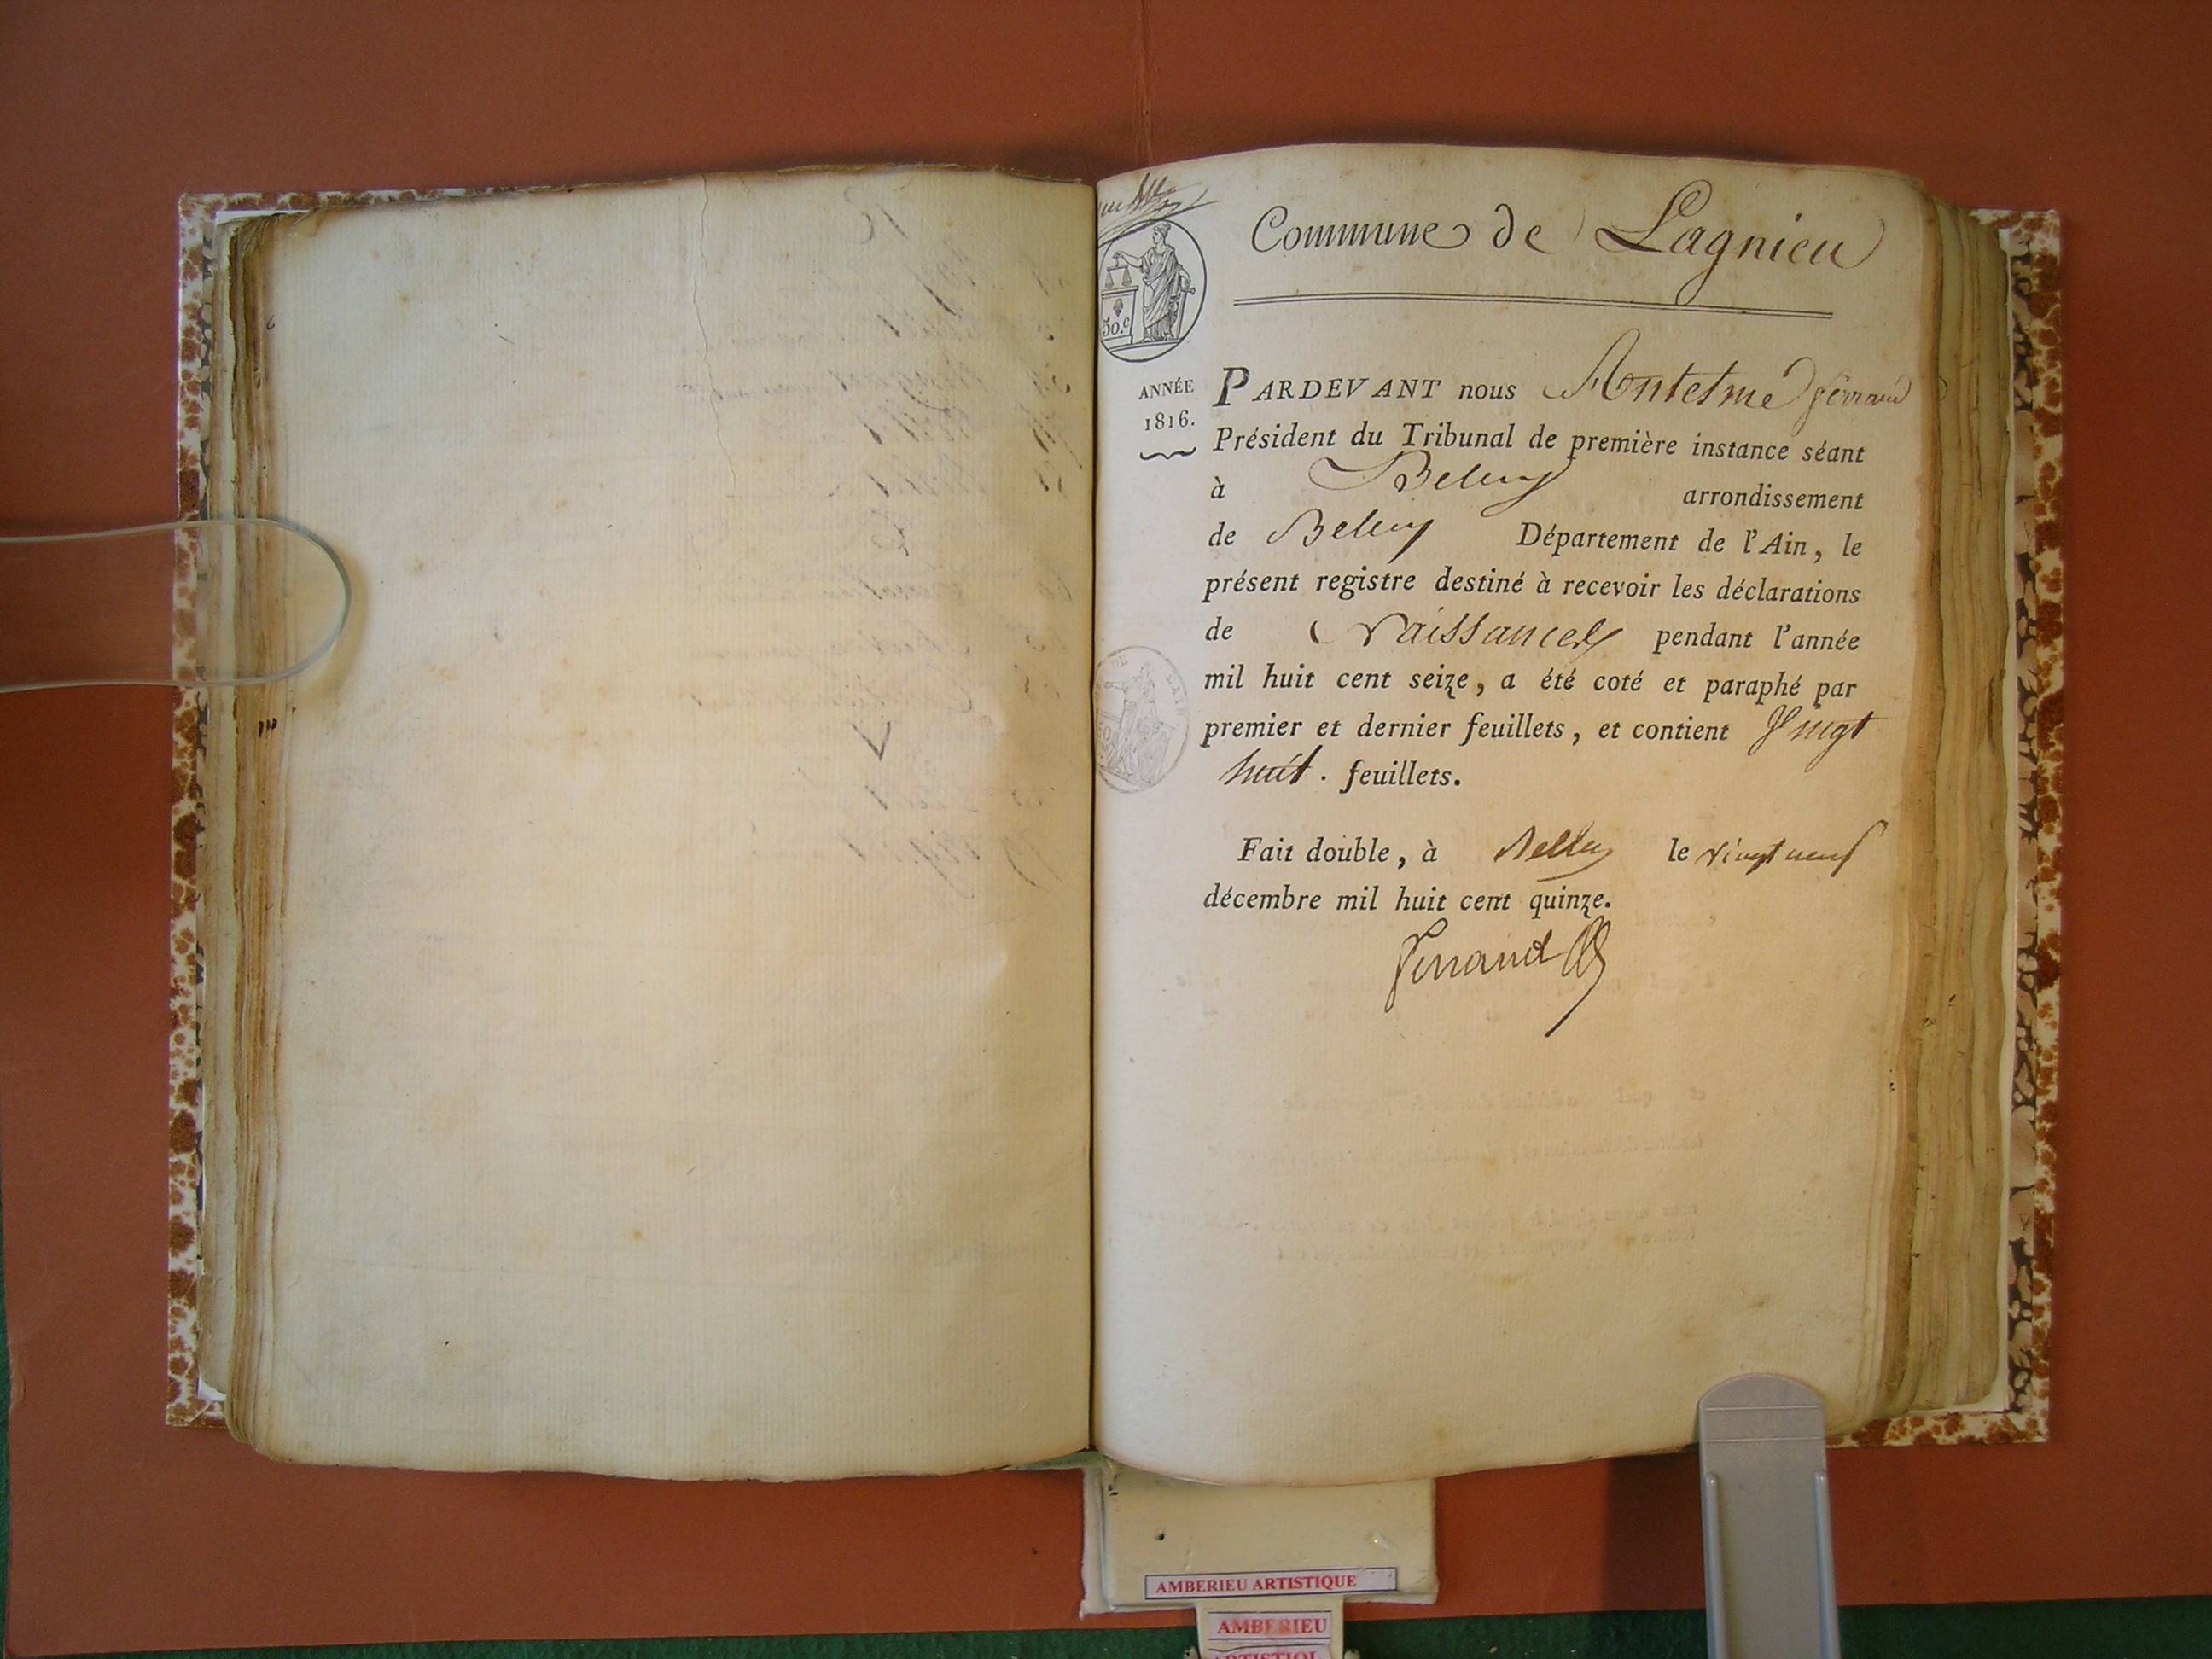 Commune de Lagnieu
50.c
ANNÉE
1816.
PARDEVANT nous Antelme ferrand
Président du Tribunal de première instance séant
à Belley arrondissement
de Belley Département de l'Ain, le
présent registre destiné à recevoir les déclarations
de Naissances pendant l'année
mil huit cent seize, a été coté et paraphé par
premier et dernier feuillets, et contient Vingt
huit. feuillets.
Fait double, à Belley le vingt neuf
décembre mil huit cent quinze.
ferrand
DE L'AIN
AMBERIEU ARTISTIQUE
AMBERIEU